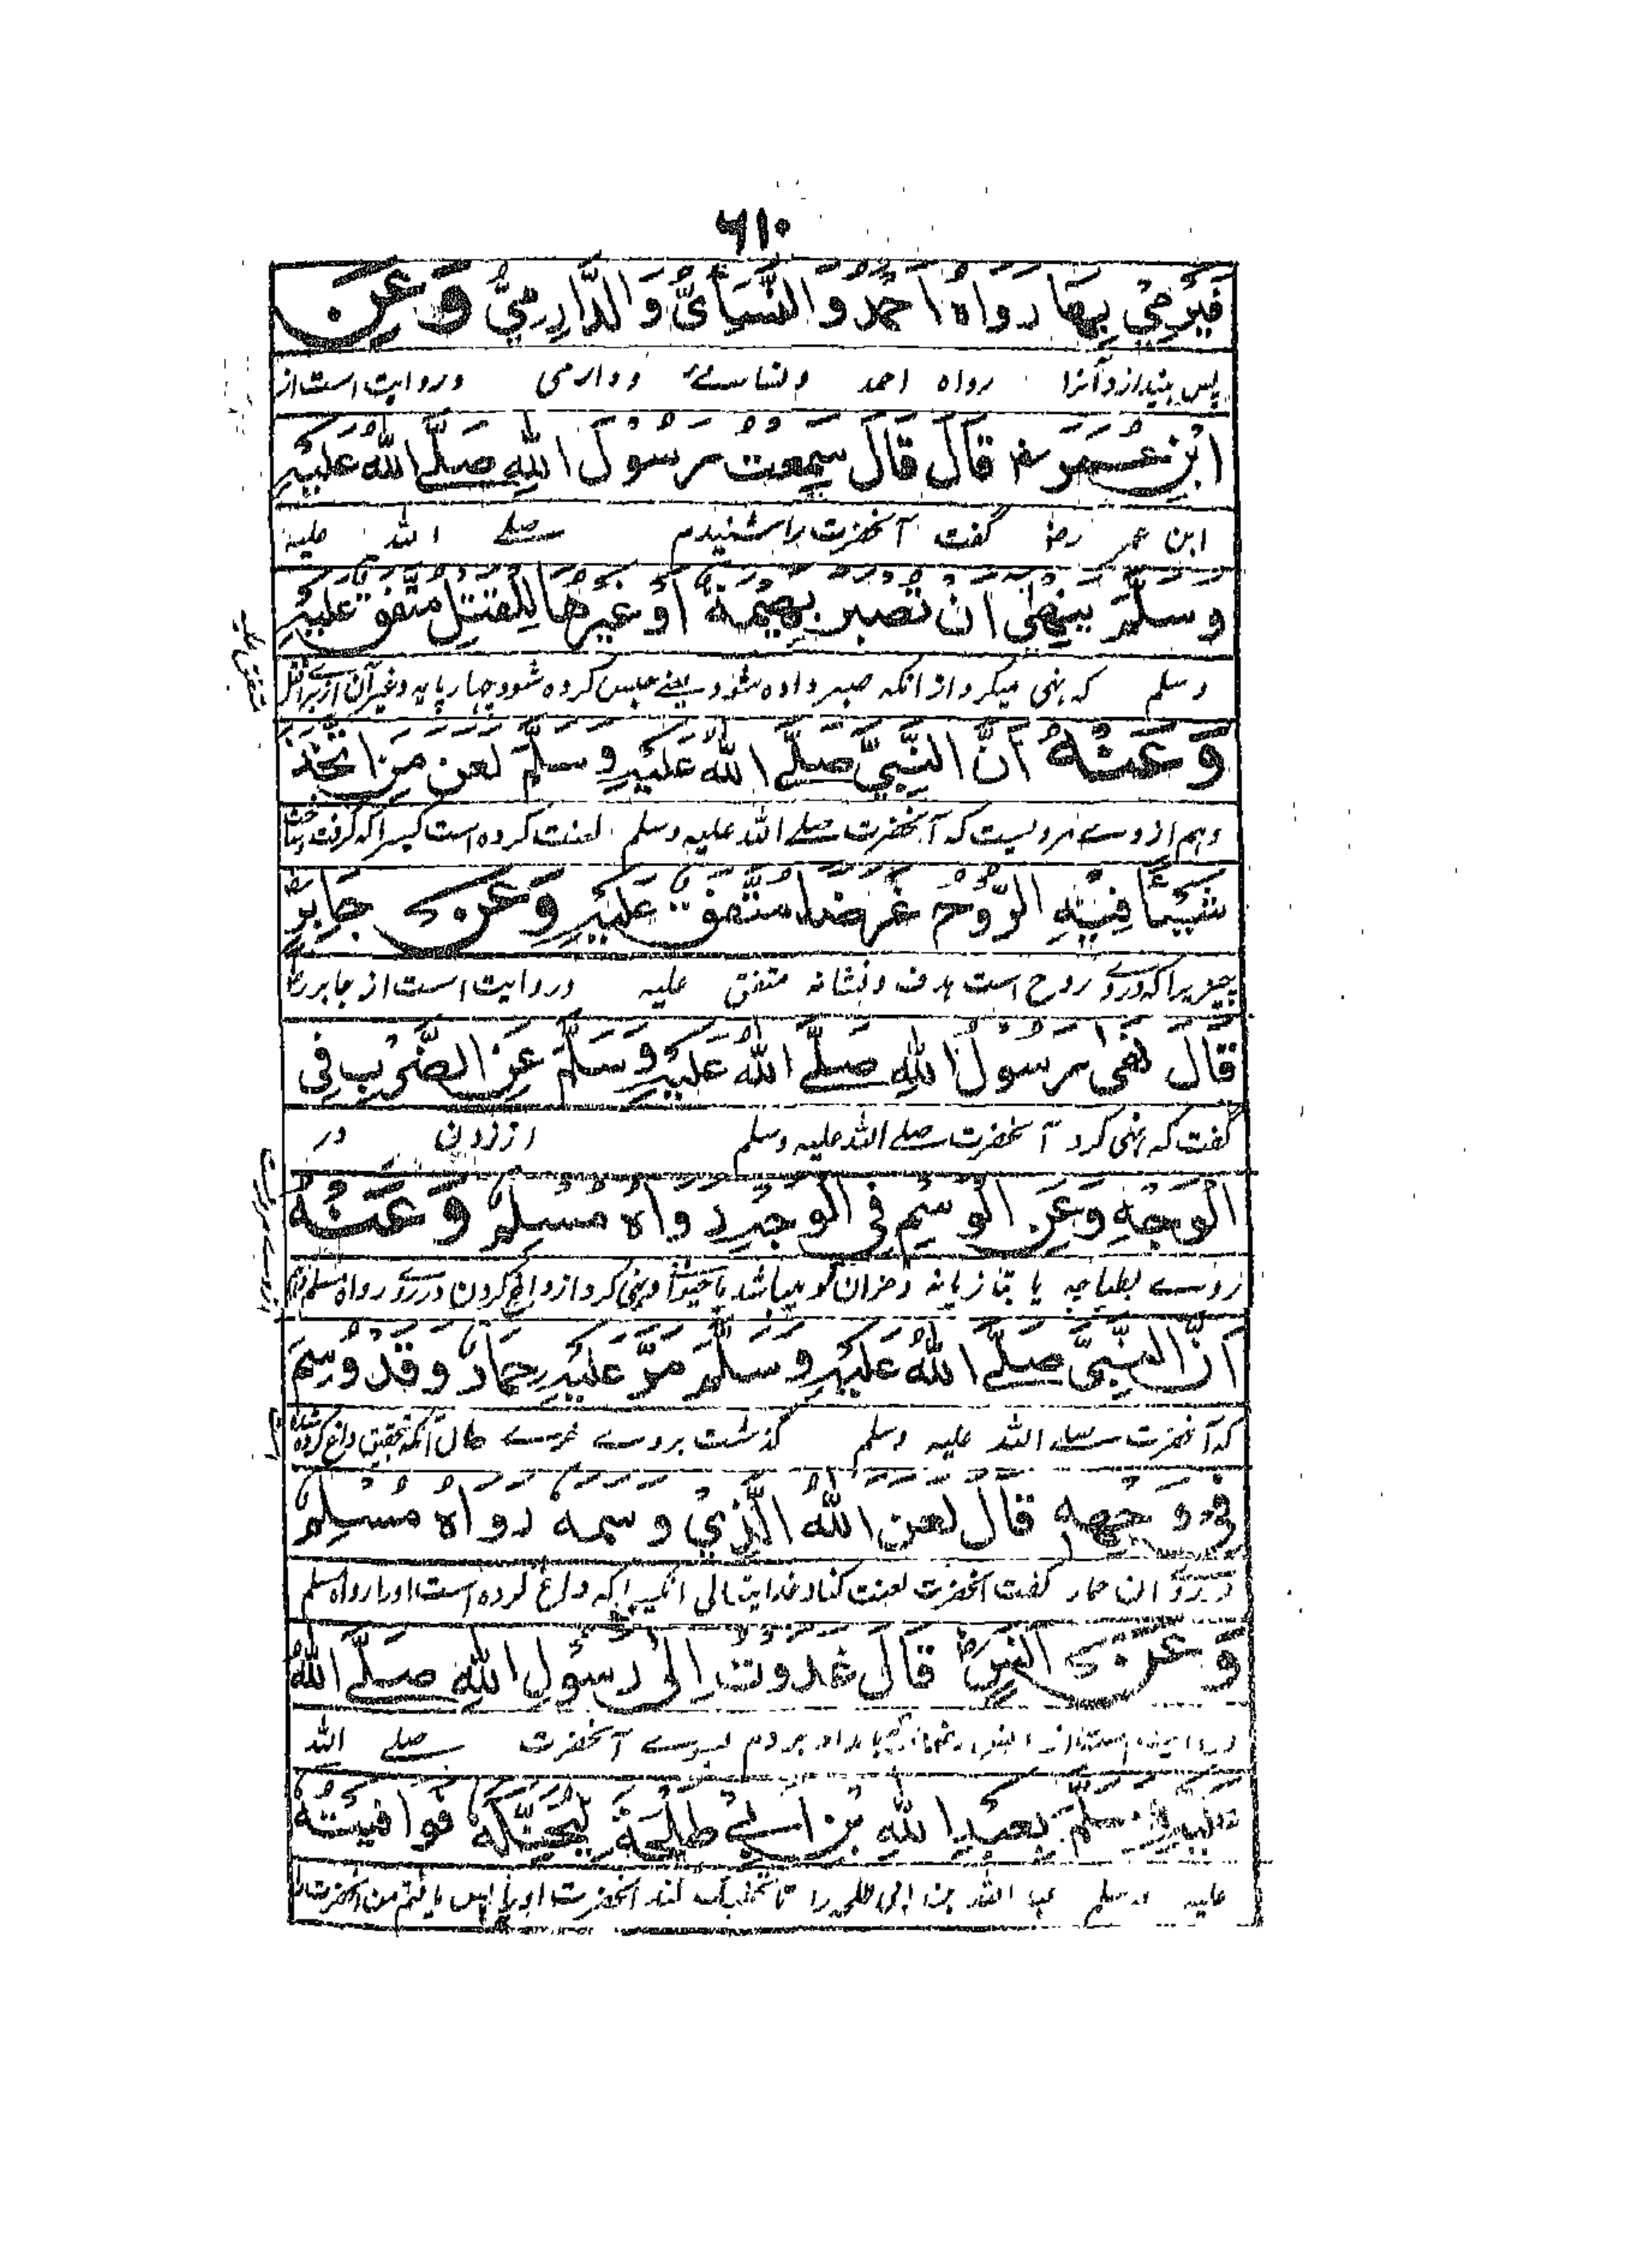 ٦١٠
فَيَرْمِيْ بِهَا رَوَاهُ اَحْمَدُ وَالنَّسَائِيُّ وَالدَّارِمِيُّ وَعَنِ
پس بیندازد آنرا رواه احمد ونسائے ودارمی وروایت است از
ابْنِ عُمَرَ رض قَالَ قَالَ سَمِعْتُ رَسُوْلَ اللهِ صَلَّے اللهُ عَلَيْهِ
ابن عمر رضہ گفت آنحضرت را شنیدم صلے الله علیه
وَسَلَّمَ يَنْهٰى اَنْ تُصْبَرَ بَهِيْمَةٌ اَوْ غَيْرُهَا لِلْقَتْلِ مُتَّفَقٌ عَلَيْهِ
وسلم که نهی میکرد از انکه صبر داده شود یعنے حبس کرده شود چهار پایه وغیر آن از برائے قتل
وَعَنْهُ اَنَّ النَّبِيَّ صَلَّے اللهُ عَلَيْهِ وَسَلَّمَ لَعَنَ مَنِ اتَّخَذَ
وهم از وے مرویست که آنحضرت صلے الله علیه وسلم لعنت کرده است کسیرا که گرفت
شَيْئًا فِيْهِ الرُّوْحُ غَرَضًا مُتَّفَقٌ عَلَيْهِ وَعَنْ جَابِرٍ رض
چیزیرا که دروے روح است هدف ونشانه متفق علیه وروایت است از جابر رض
قَالَ نَهٰى رَسُوْلُ اللهِ صَلَّے اللهُ عَلَيْهِ وَسَلَّمَ عَنِ الضَّرْبِ فِى
گفت که نهی کرد آنحضرت صلے الله علیه وسلم از زدن در
الْوَجْهِ وَعَنِ الْوَسْمِ فِى الْوَجْهِ رَوَاهُ مُسْلِمٌ وَعَنْهُ
روے بطپانچه یا بتازیانه ونهی کرد از داغ کردن در روے رواه مسلم
اَنَّ النَّبِيَّ صَلَّے اللهُ عَلَيْهِ وَسَلَّمَ مَرَّ عَلَيْهِ حِمَارٌ وَقَدْ وُسِمَ
که آنحضرت صلے الله علیه وسلم گذشت بروے خرے حال آنکه بتحقیق داغ کرده شده
فِىْ وَجْهِهٖ قَالَ لَعَنَ اللهُ الَّذِيْ وَسَمَهٗ رَوَاهُ مُسْلِمٌ
در روے ان حمار گفت آنحضرت لعنت کناد خدایتعالی انکسیرا که داغ کرده است اورا رواه مسلم
وَعَنْ اَنَسٍ رض قَالَ غَدَوْتُ اِلٰى رَسُوْلِ اللهِ صَلَّے اللهُ
بامداد بردم بسوے آنحضرت صلے الله
عَلَيْهِ وَسَلَّمَ بِعَبْدِ اللهِ بْنِ اَبِيْ طَلْحَةَ لِيُحَنِّكَهٗ فَوَافَيْتُهٗ
علیه وسلم عبد الله بن ابی طلحه را تا تحنیک کند آنحضرت اورا پس یافتم من آنحضرت را